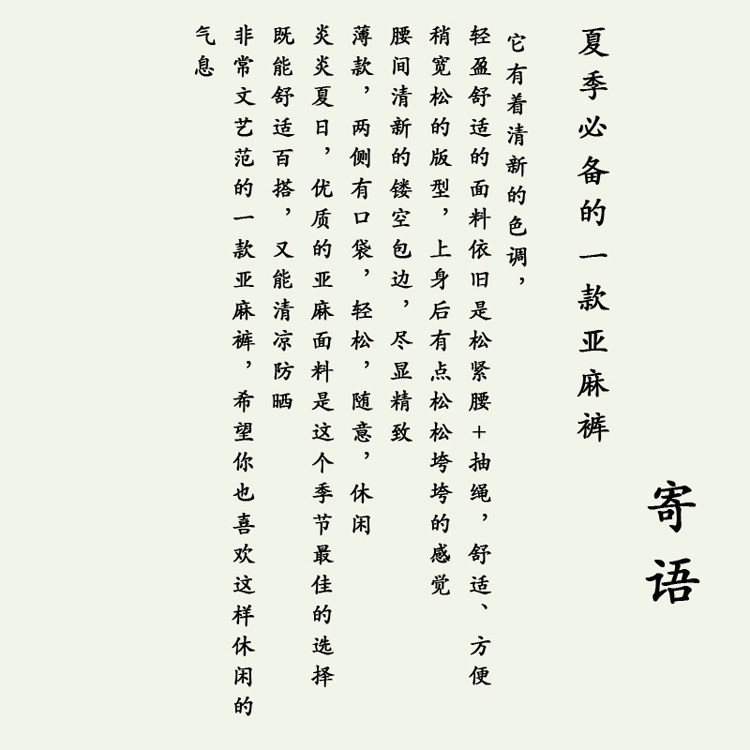 寄语
夏季必备的一款亚麻裤
它有着清新的色调，
轻盈舒适的面料依旧是松紧腰+抽绳，舒适、方便
稍宽松的版型，上身后有点松松垮垮的感觉
腰间清新的镂空包边，尽显精致
薄款，两侧有口袋，轻松，随意，休闲
炎炎夏日，优质的亚麻面料是这个季节最佳的选择
既能舒适百搭，又能清凉防晒
非常文艺范的一款亚麻裤，希望你也喜欢这样休闲的
气息